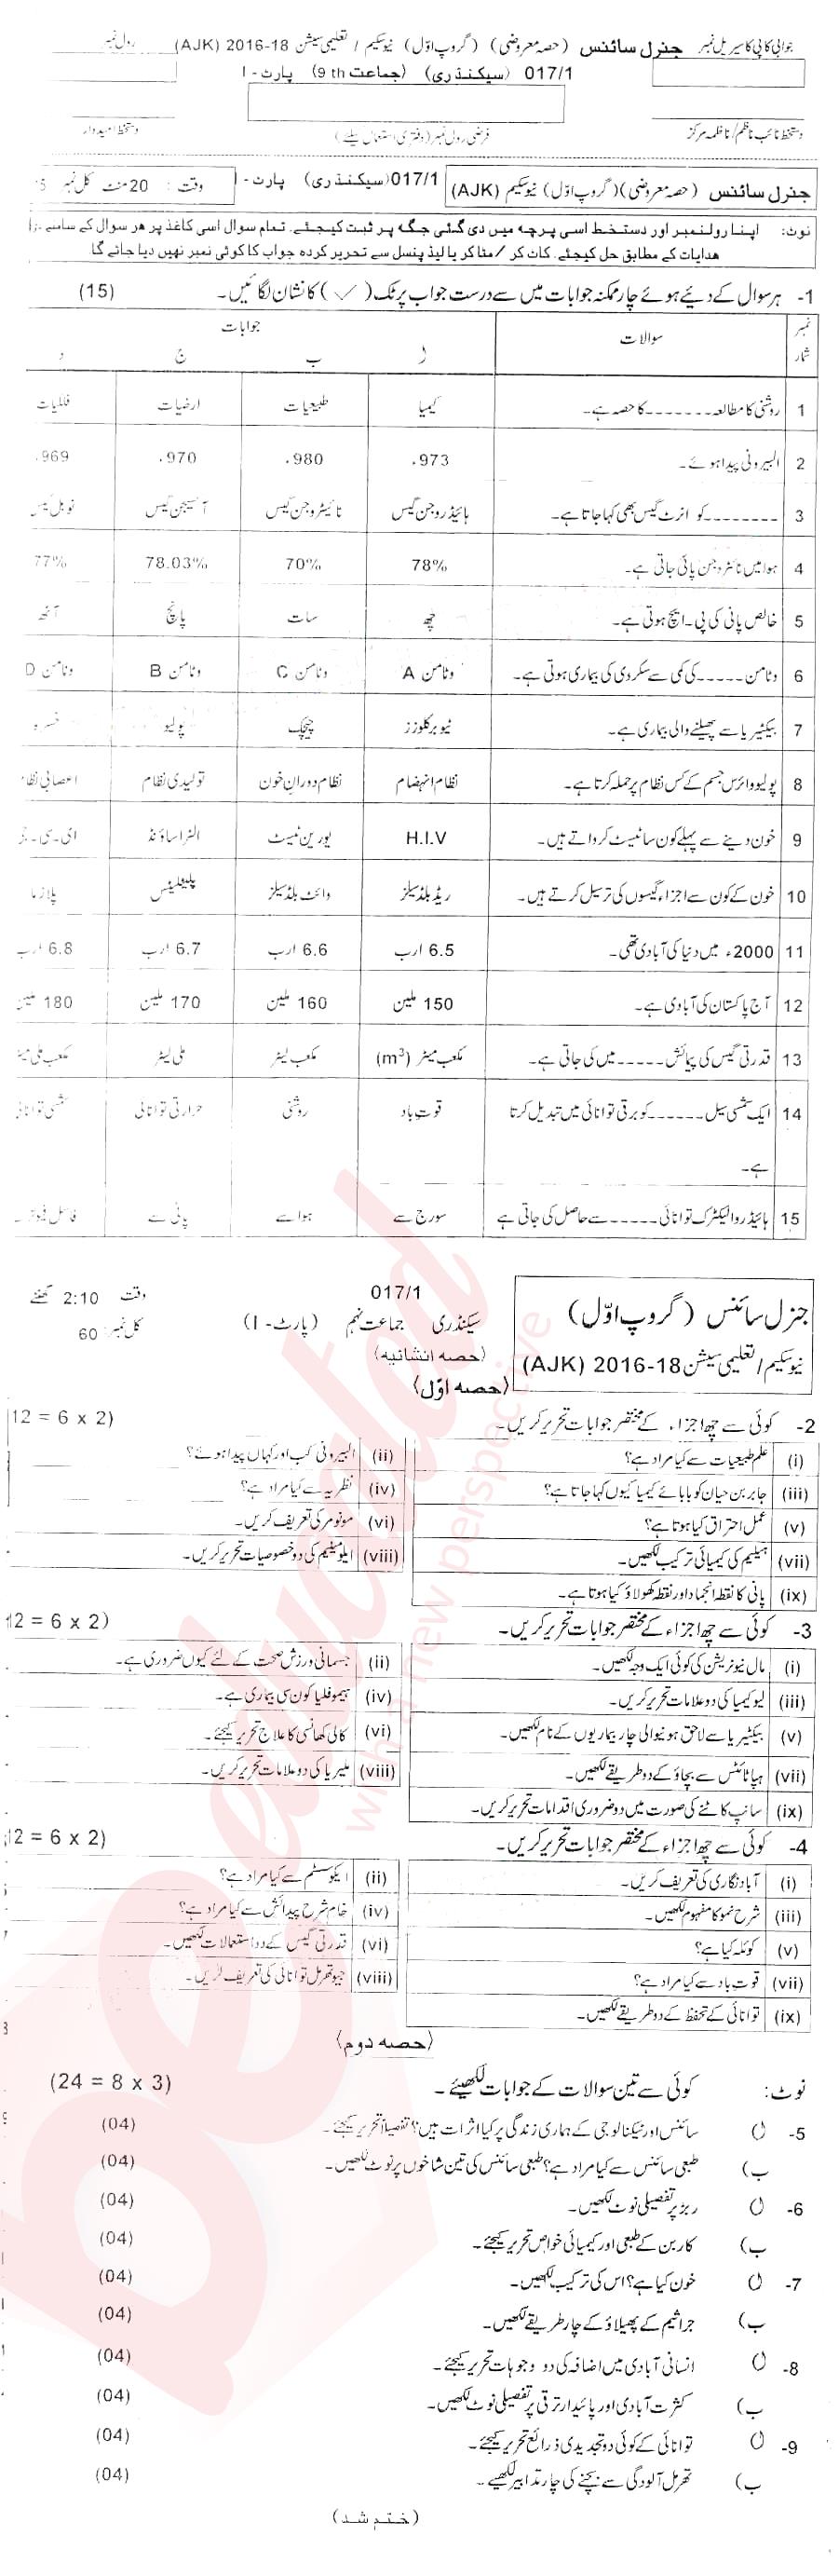 جوابی کاپی کا سیریل نمبر جنرل سائنس (حصہ معروضی) (گروپ اوّل) نیوسکیم / تعلیمی سیشن 18-2016 (AJK) رول نمبر
017/1 (سیکنڈری) (جماعت 9th) پارٹ - I
دستخط نائب ناظم / ناظمہ مرکز فرضی رول نمبر (دفتری استعمال کیلئے) دستخط امیدوار
جنرل سائنس (حصہ معروضی) (گروپ اوّل) نیوسکیم (AJK) 017/1 (سیکنڈری) پارٹ - I وقت : 20 منٹ کل نمبر
نوٹ: اپنا رولنمبر اور دستخط اسی پرچہ میں دی گئی جگہ پر ثبت کیجئے۔ تمام سوال اسی کاغذ پر ہر سوال کے سامنے
ہدایات کے مطابق حل کیجئے۔ کاٹ کر / مٹا کر یا لیڈ پنسل سے تحریر کردہ جواب کا کوئی نمبر نہیں دیا جائے گا
1- ہر سوال کے دیئے ہوئے چار ممکنہ جوابات میں سے درست جواب پر ٹک (✓) کا نشان لگائیں۔ (15)
نمبر شمار سوالات جوابات
ا ب ج د
1 روشنی کا مطالعہ ------- کا حصہ ہے۔ کیمیا طبیعیات ارضیات فلکیات
2 البیرونی پیدا ہوئے۔ 973ء 980ء 970ء 969ء
3 -------- کو انرٹ گیس بھی کہا جاتا ہے۔ ہائیڈروجن گیس نائیٹروجن گیس آکسیجن گیس نوبل گیس
4 ہوا میں نائٹروجن پائی جاتی ہے۔ 78% 70% 78.03% 77%
5 خالص پانی کی پی۔ایچ ہوتی ہے۔ چھ سات پانچ آٹھ
6 وٹامن ----- کی کمی سے سکروی کی بیماری ہوتی ہے۔ وٹامن A وٹامن C وٹامن B وٹامن D
7 بیکٹیریا سے پھیلنے والی بیماری ہے۔ ٹیوبرکلوزز چیچک پولیو خسرہ
8 پولیو وائرس جسم کے کس نظام پر حملہ کرتا ہے۔ نظام انہضام نظام دوران خون تولیدی نظام اعصابی نظام
9 خون دینے سے پہلے کون سا ٹیسٹ کرواتے ہیں۔ H.I.V یورین ٹیسٹ الٹراساؤنڈ ای۔سی۔جی
10 خون کے کون سے اجزاء گیسوں کی ترسیل کرتے ہیں۔ ریڈ بلڈ سیلز وائٹ بلڈ سیلز پلیٹلیٹس پلازما
11 2000ء میں دنیا کی آبادی تھی۔ 6.5 ارب 6.6 ارب 6.7 ارب 6.8 ارب
12 آج پاکستان کی آبادی ہے۔ 150 ملین 160 ملین 170 ملین 180 ملین
13 قدرتی گیس کی پیمائش ----- میں کی جاتی ہے۔ مکعب میٹر (m³) مکعب لیٹر ملی لیٹر مکعب ملی میٹر
14 ایک شمسی سیل ------ کو برقی توانائی میں تبدیل کرتا قوت باد روشنی حرارتی توانائی شمسی توانائی
ہے۔
15 ہائیڈرو الیکٹرک توانائی ----- سے حاصل کی جاتی ہے سورج سے ہوا سے پانی سے فاسل فیولز
جنرل سائنس (گروپ اوّل) 017/1 وقت 2:10 گھنٹے
نیوسکیم / تعلیمی سیشن 18-2016 (AJK) سیکنڈری جماعت نہم (پارٹ - I) کل نمبر: 60
(حصہ انشائیہ)
(حصہ اوّل)
2- کوئی سے چھ اجزاء کے مختصر جوابات تحریر کریں۔ (12 = 6 x 2)
(i) علم طبیعیات سے کیا مراد ہے؟ (ii) البیرونی کب اور کہاں پیدا ہوئے؟
(iii) جابر بن حیان کو بابائے کیمیا کیوں کہا جاتا ہے؟ (iv) نظریہ سے کیا مراد ہے؟
(v) عمل احتراق کیا ہوتا ہے؟ (vi) مونومر کی تعریف کریں۔
(vii) ہیلیم کی کیمیائی ترکیب لکھیں۔ (viii) ایلومینیم کی دو خصوصیات تحریر کریں۔
(ix) پانی کا نقطہ انجماد اور نقطہ کھولاؤ کیا ہوتا ہے۔
3- کوئی سے چھ اجزاء کے مختصر جوابات تحریر کریں۔ (12 = 6 x 2)
(i) مال نیوٹریشن کی کوئی ایک وجہ لکھیں۔ (ii) جسمانی ورزش صحت کے لئے کیوں ضروری ہے۔
(iii) لیوکیمیا کی دو علامات تحریر کریں۔ (iv) ہیموفلیا کون سی بیماری ہے۔
(v) بیکٹیریا سے لاحق ہونیوالی چار بیماریوں کے نام لکھیں۔ (vi) کالی کھانسی کا علاج تحریر کیجئے۔
(vii) ہیپاٹائٹس سے بچاؤ کے دو طریقے لکھیں۔ (viii) ملیریا کی دو علامات تحریر کریں۔
(ix) سانپ کاٹنے کی صورت میں دو ضروری اقدامات تحریر کریں۔
4- کوئی سے چھ اجزاء کے مختصر جوابات تحریر کریں۔ (12 = 6 x 2)
(i) آباد نگاری کی تعریف کریں۔ (ii) ایکوسسٹم سے کیا مراد ہے؟
(iii) شرح نمو کا مفہوم لکھیں۔ (iv) خام شرح پیدائش سے کیا مراد ہے؟
(v) کوئلہ کیا ہے؟ (vi) قدرتی گیس کے دو استعمالات لکھیں۔
(vii) قوت باد سے کیا مراد ہے؟ (viii) جیوتھرمل توانائی کی تعریف کریں۔
(ix) توانائی کے تحفظ کے دو طریقے لکھیں۔
(حصہ دوم)
نوٹ: کوئی سے تین سوالات کے جوابات لکھیئے۔ (24 = 8 x 3)
5- ا) سائنس اور ٹیکنالوجی کے ہماری زندگی پر کیا اثرات ہیں؟ تفصیلاً تحریر کیجئے۔ (04)
ب) طبعی سائنس سے کیا مراد ہے؟ طبعی سائنس کی تین شاخوں پر نوٹ لکھیں۔ (04)
6- ا) ربڑ پر تفصیلی نوٹ لکھیں۔ (04)
ب) کاربن کے طبعی اور کیمیائی خواص تحریر کیجئے۔ (04)
7- ا) خون کیا ہے؟ اس کی ترکیب لکھیں۔ (04)
ب) جراثیم کے پھیلاؤ کے چار طریقے لکھیں۔ (04)
8- ا) انسانی آبادی میں اضافہ کی دو وجوہات تحریر کیجئے۔ (04)
ب) کثرت آبادی اور پائیدار ترقی پر تفصیلی نوٹ لکھیں۔ (04)
9- ا) توانائی کے کوئی دو تجدیدی ذرائع تحریر کیجئے۔ (04)
ب) تھرمل آلودگی سے بچنے کی چار تدابیر لکھیے۔ (04)
(ختم شد)
beeducated
with a new perspective